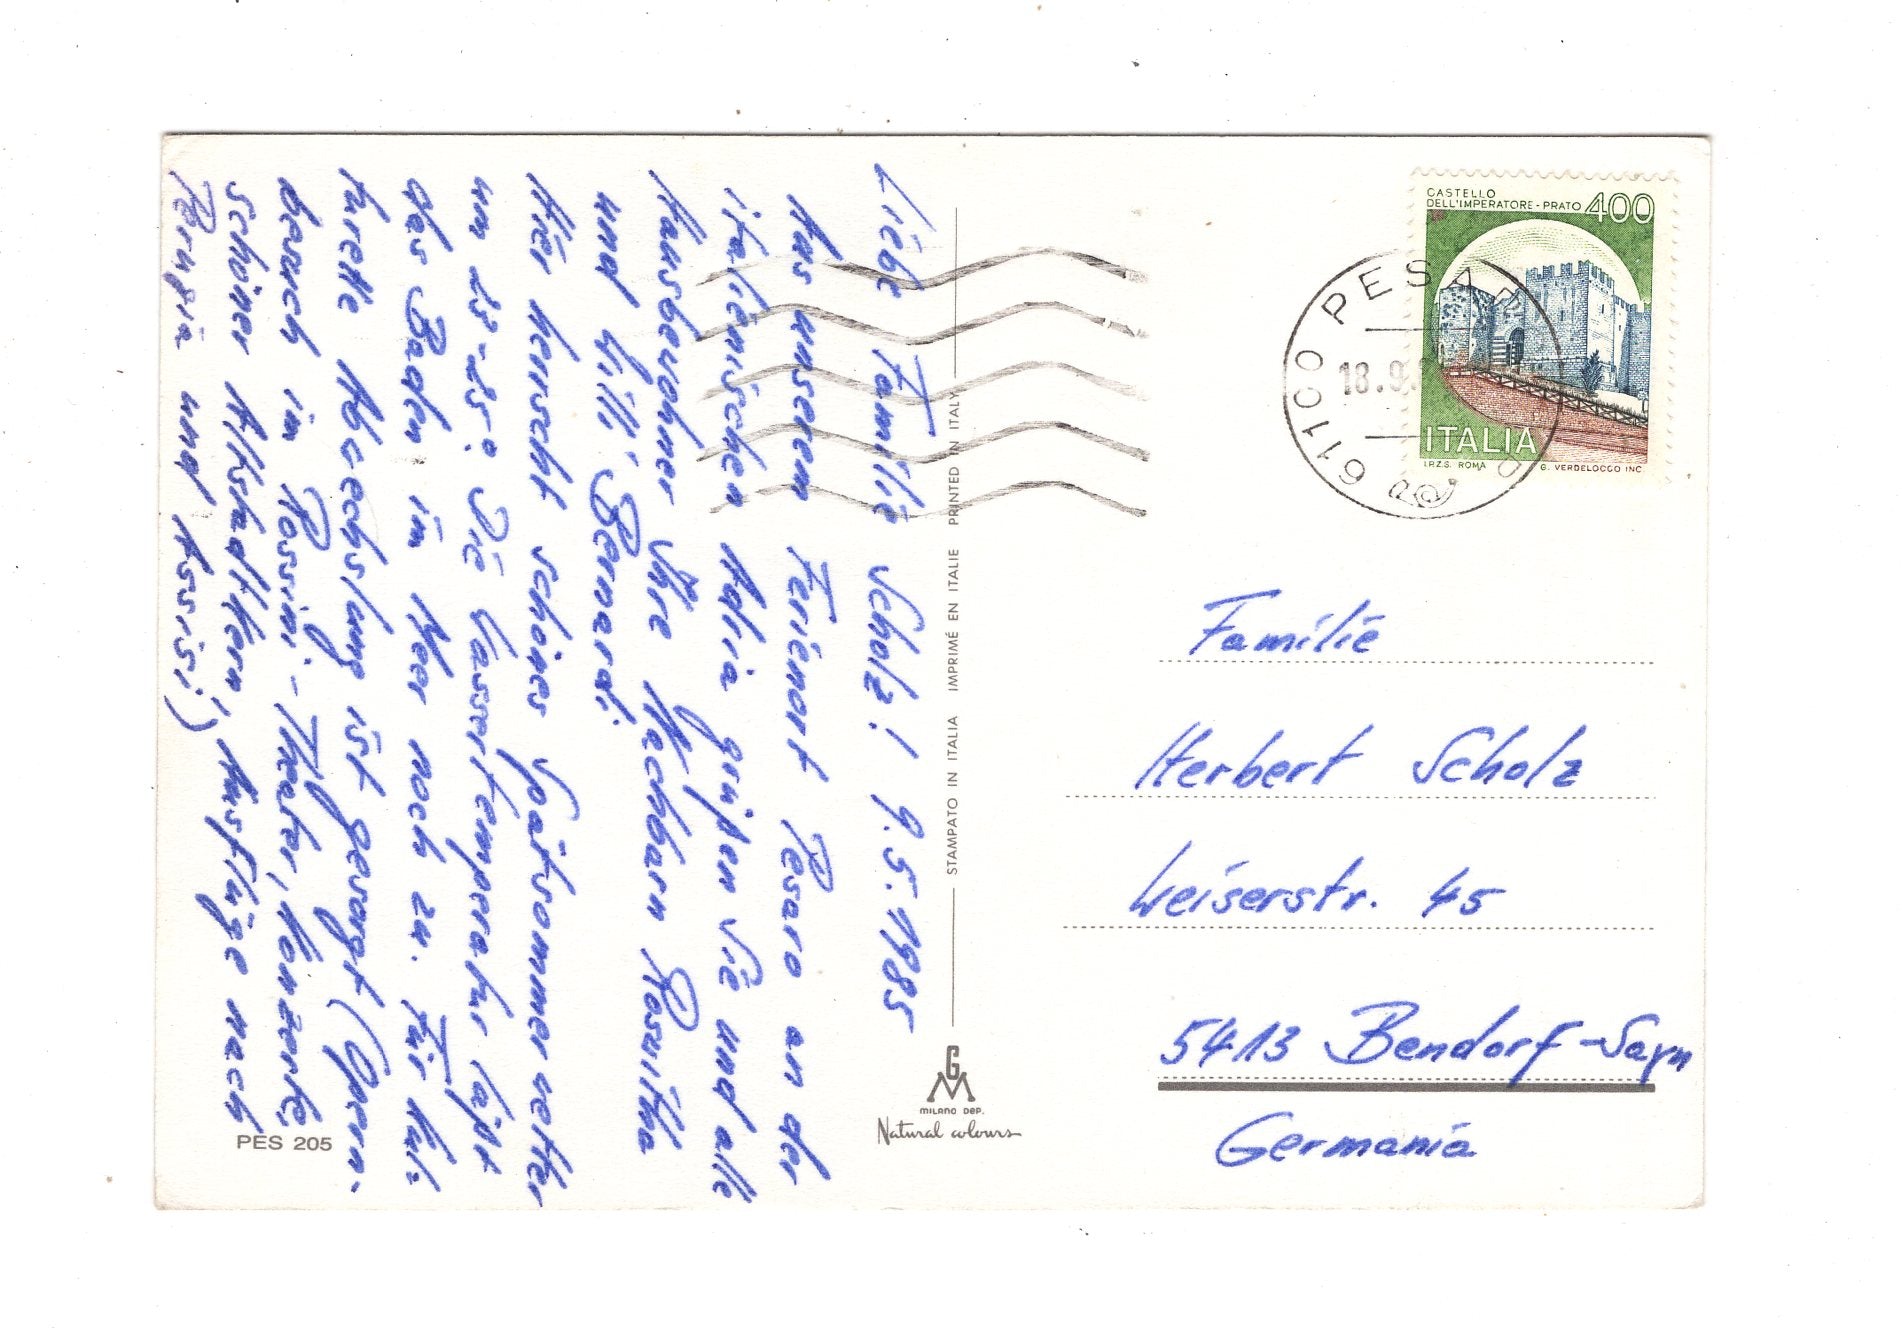 Liebe Familie Scholz! 9.5.1985
Aus unserem Ferienort Pesaro an der
italienischen Adria grüßen Sie und alle
Hausbewohner Ihre Nachbarn Roswitha
und Willi Bernardi.
Hier herrscht schönes Spätsommerwetter
um 23-25° Die Wassertemperatur läßt
das Baden im Meer noch zu. Für kul-
turelle Abwechslung ist gesorgt (Opern-
besuch im Rossini-Theater, Konzerte,
schöner Altstadtkern, Ausflüge nach
Perugia und Assisi)
PES 205
STAMPATO IN ITALIA IMPRIMÉ EN ITALIE PRINTED IN ITALY
GM
MILANO DEP.
Natural colours
CASTELLO
DELL'IMPERATORE - PRATO 400
ITALIA
I.P.Z.S. ROMA G. VERDELOCCO INC
61100 PESA
18.9.
Familie
Herbert Scholz
Weiserstr. 45
5413 Bendorf-Sayn
Germania